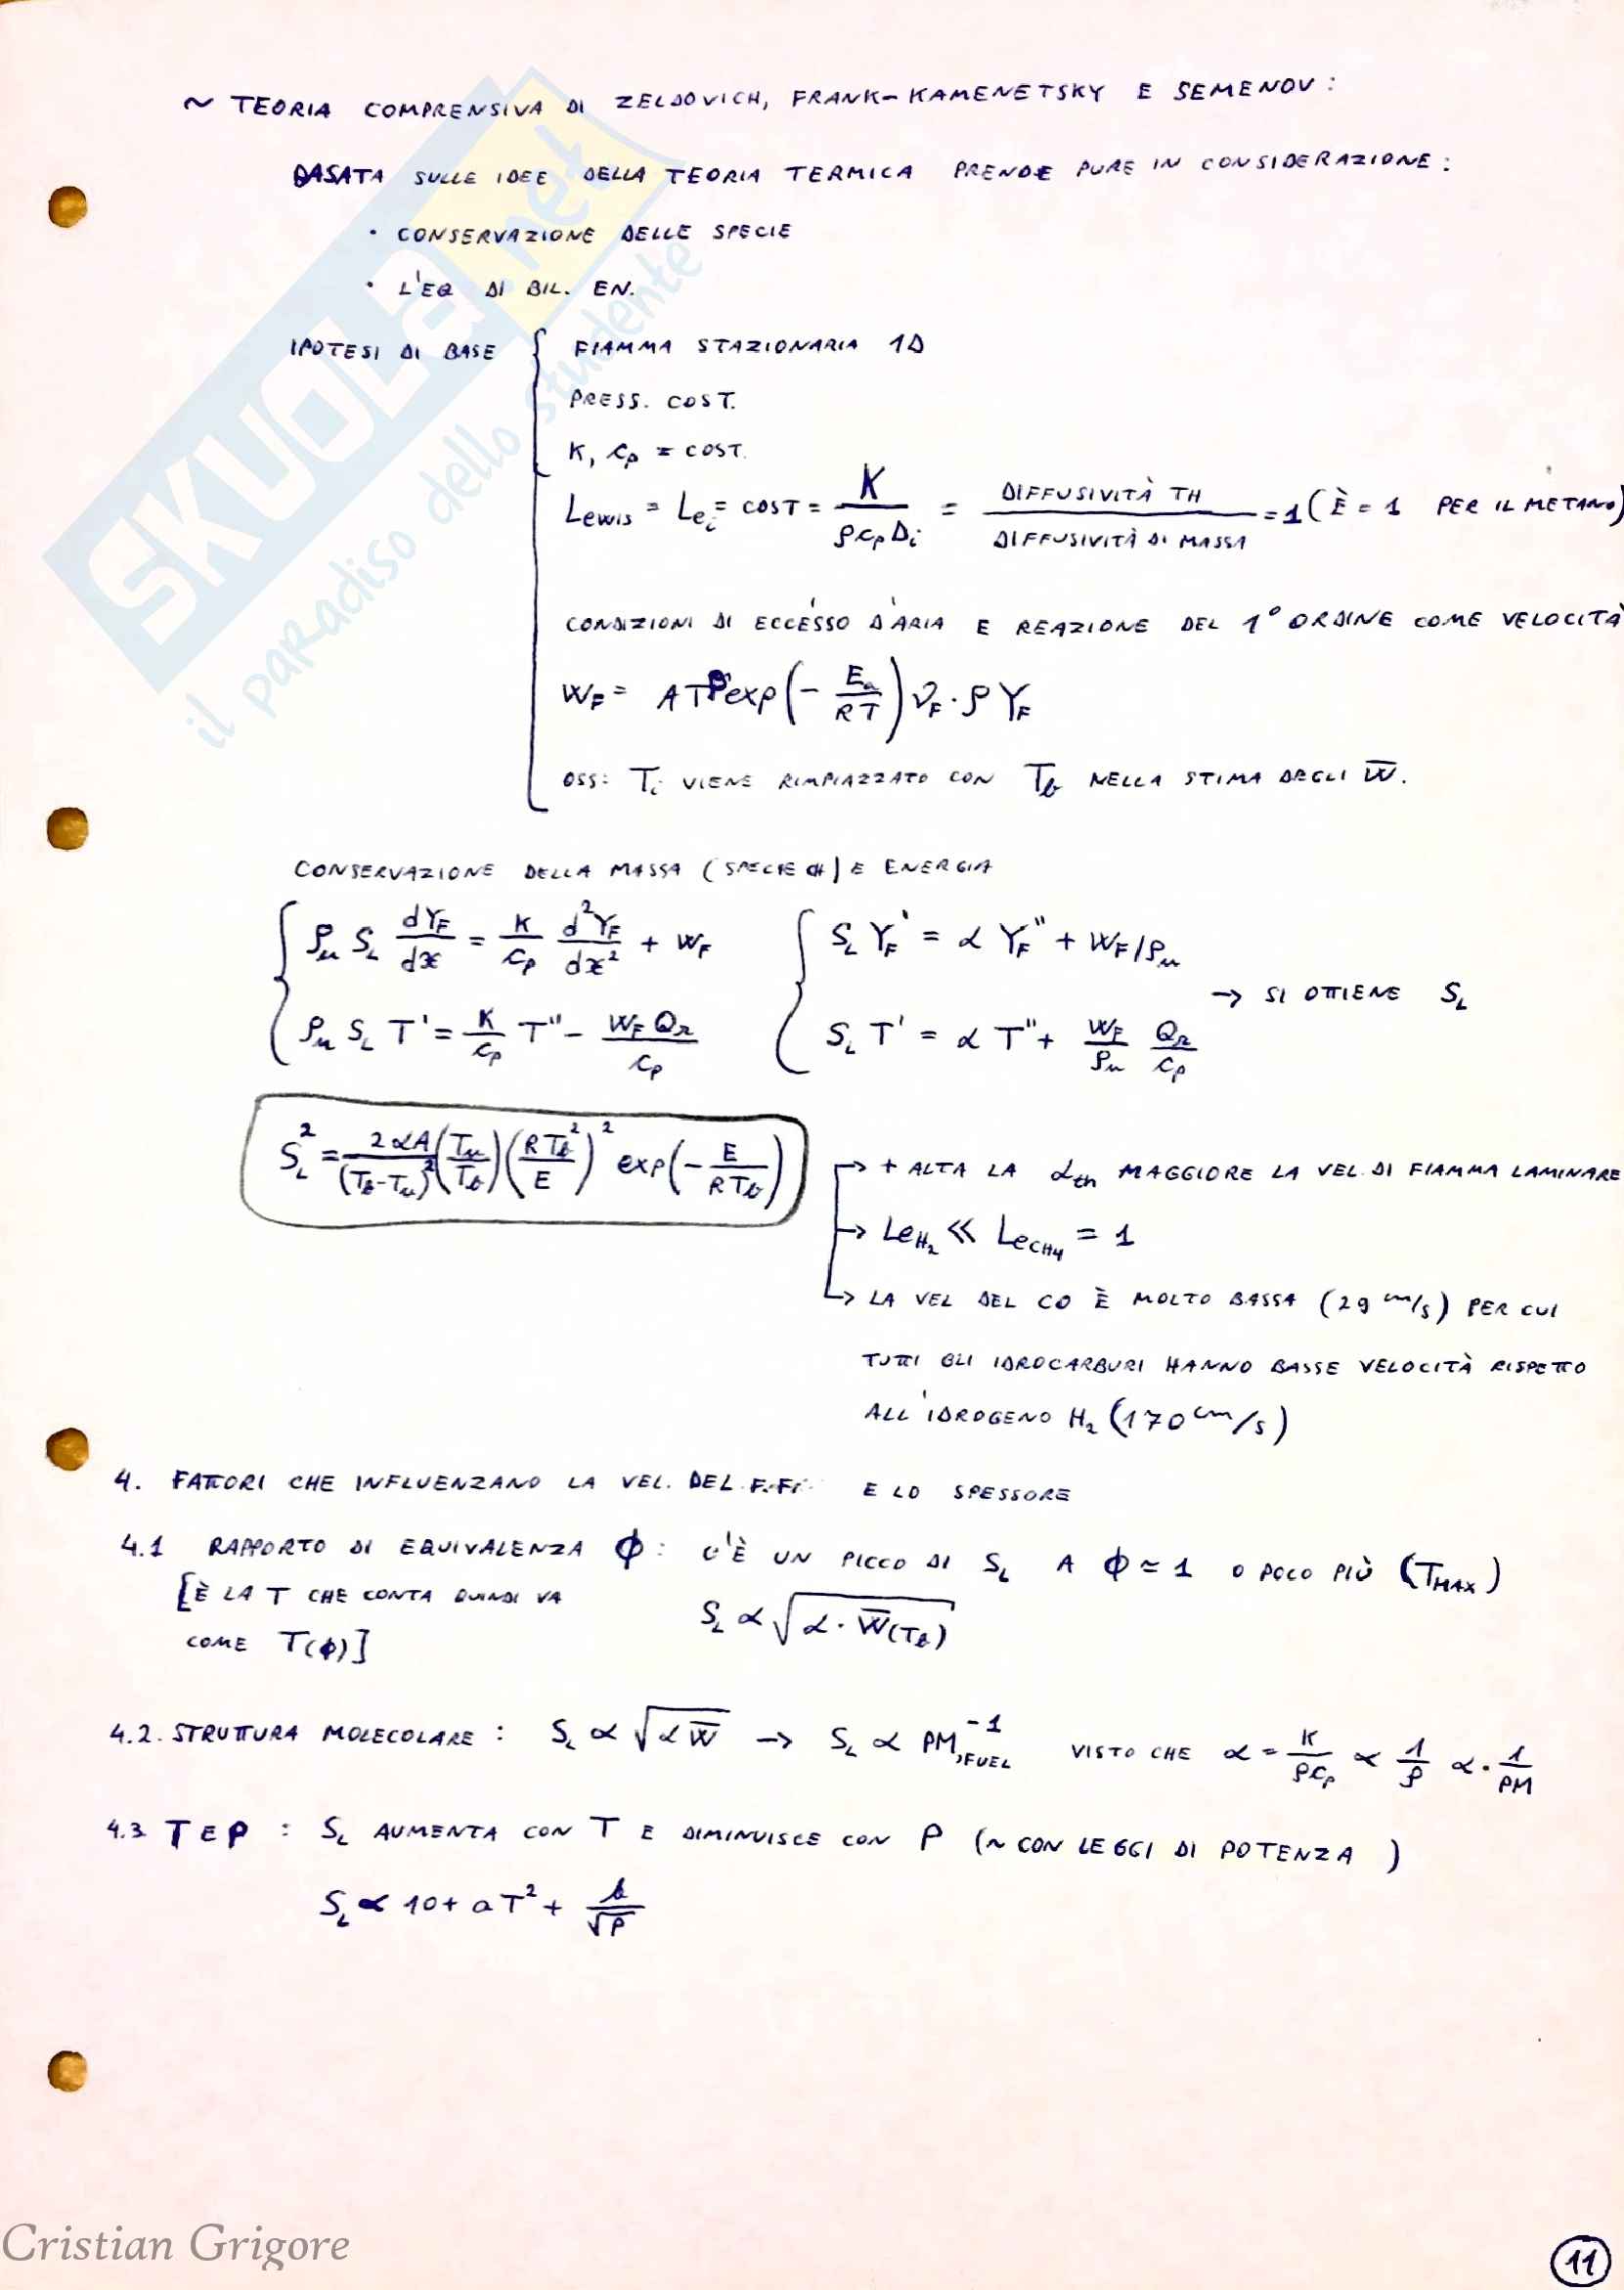 ~ TEORIA COMPRENSIVA DI ZELDOVICH, FRANK-KAMENETSKY E SEMENOV :
BASATA SULLE IDEE DELLA TEORIA TERMICA PRENDE PURE IN CONSIDERAZIONE :
• CONSERVAZIONE DELLE SPECIE
• L'EQ DI BIL. EN.
IPOTESI DI BASE { FIAMMA STAZIONARIA 1D
PRESS. COST.
K, cp = COST.
Lewis = Le_i = COST = K / (ρ cp D_i) = DIFFUSIVITÀ TH / DIFFUSIVITÀ DI MASSA = 1 (È = 1 PER IL METANO)
CONDIZIONI DI ECCESSO D'ARIA E REAZIONE DEL 1° ORDINE COME VELOCITÀ
W_F = A T exp(- E_a / RT) ν_F · ρ Y_F
OSS: T_i VIENE RIMPIAZZATO CON T_b NELLA STIMA DEGLI W̅.
CONSERVAZIONE DELLA MASSA (SPECIE) E ENERGIA
{ ρ_u S_L dY_F/dx = K/cp d²Y_F/dx² + W_F { S_L Y_F' = α Y_F'' + W_F/ρ_u
→ SI OTTIENE S_L
ρ_u S_L T' = K/cp T'' - W_F Q_R / cp S_L T' = α T'' + W_F/ρ_u Q_R/cp
S_L² = 2αA/(T_b-T_u)² (T_u/T_b) (R T_b²/E)² exp(- E/(R T_b))
→ + ALTA LA α_th MAGGIORE LA VEL. DI FIAMMA LAMINARE
→ Le_H2 << Le_CH4 = 1
→ LA VEL DEL CO È MOLTO BASSA (29 cm/s) PER CUI
TUTTI GLI IDROCARBURI HANNO BASSE VELOCITÀ RISPETTO
ALL'IDROGENO H2 (170 cm/s)
4. FATTORI CHE INFLUENZANO LA VEL. DEL E LO SPESSORE
4.1 RAPPORTO DI EQUIVALENZA ϕ : C'È UN PICCO DI S_L A ϕ ≃ 1 O POCO PIÙ (T_MAX)
[È LA T CHE CONTA QUINDI VA
COME T(ϕ)]
S_L ∝ √(α · W̅(T_b))
4.2. STRUTTURA MOLECOLARE : S_L ∝ √(α W̅) → S_L ∝ PM,FUEL^-1 VISTO CHE α = K/(ρcp) ∝ 1/ρ ∝ · 1/PM
4.3 T E P : S_L AUMENTA CON T E DIMINUISCE CON P (~ CON LEGGI DI POTENZA )
S_L ∝ 10 + aT² + b/√P
SKUOLA.net
il paradiso dello studente
Cristian Grigore
11